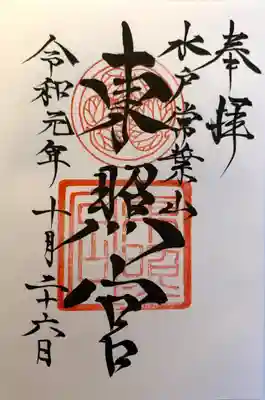 奉拝
水戸常葉山
東照宮
令和元年十月二十六日